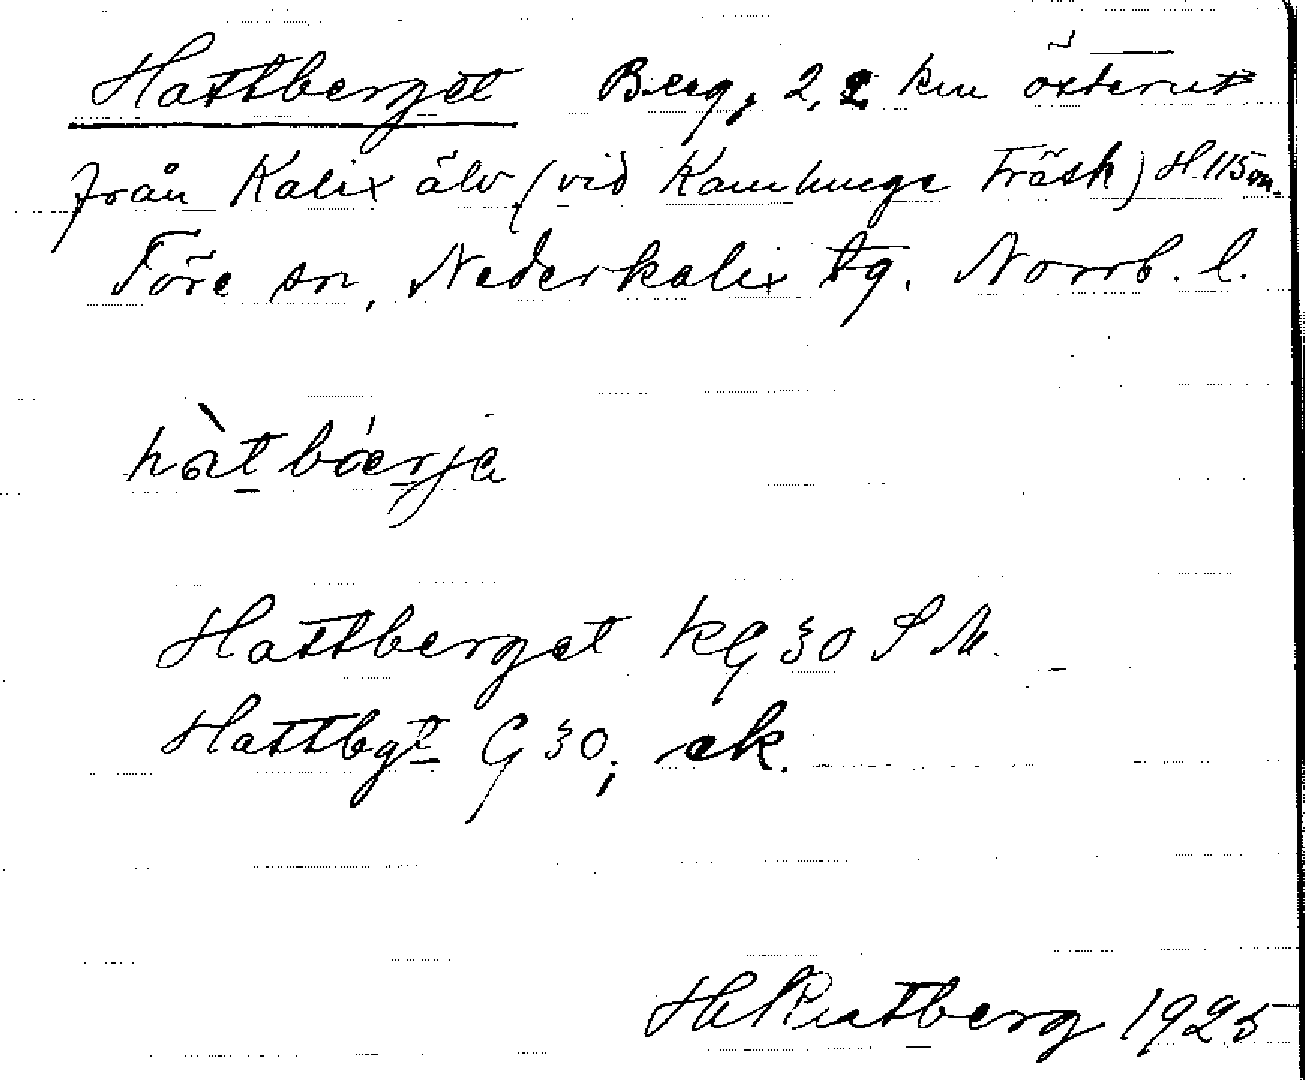 Hattberget Berg, 2,2 km österut
från Kalix älv (vid Kamlunge Träsk) H 115 m.
Töre sn, Nederkalix tg. Norrb. l.
hat bærja
Hattberget KG 30 S M.
Hattbgt G 30; ek.
H Rutberg 1925